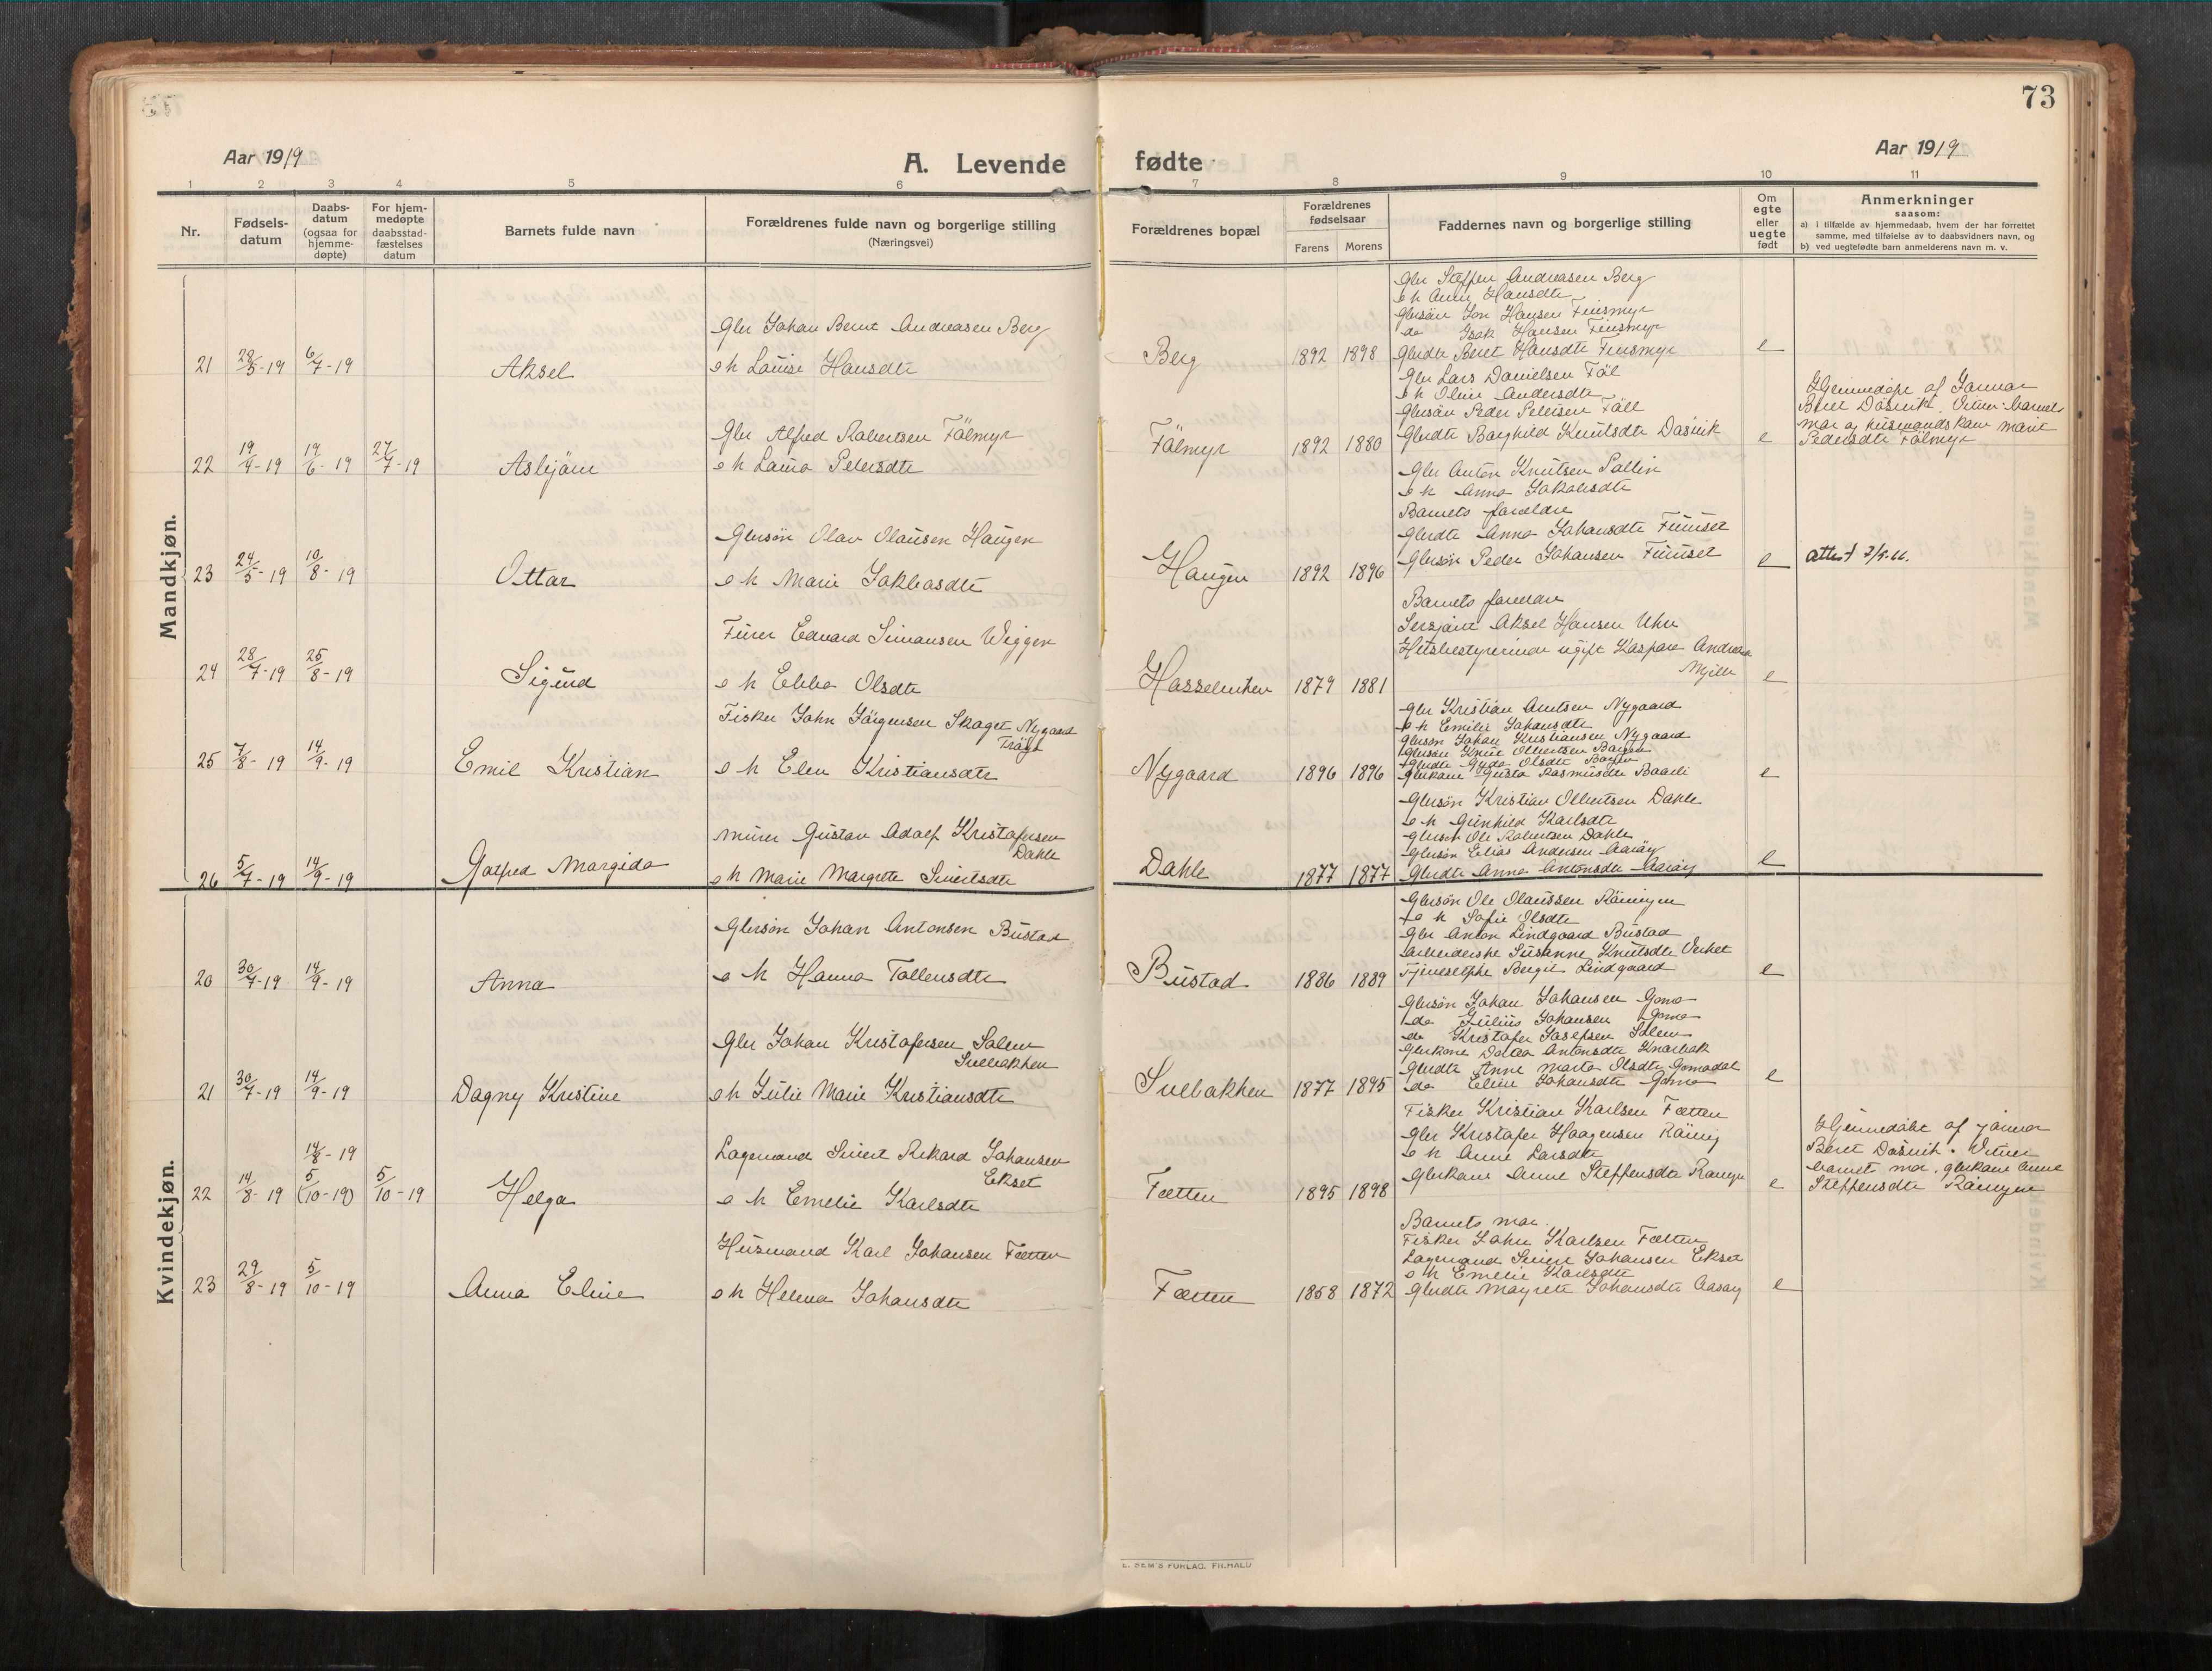 73
Aar 1919
A. Levende fødte
Aar 1919
1 2 3 4 5 6 7 8 9 10 11
Nr.
Fødsels-datum
Daabs-datum (ogsaa for hjemme-døpte)
For hjem-medøpte daabsstad-fæstelses datum
Barnets fulde navn
Forældrenes fulde navn og borgerlige stilling
(Næringsvei)
Forældrenes bopæl
Forældrenes fødselsaar
Farens Morens
Faddernes navn og borgerlige stilling
Om egte eller uegte født
Anmerkninger
saasom:
a) i tilfælde av hjemmedaab, hvem der har forrettet
samme, med tilføielse av to daabsvidners navn, og
b) ved uegtefødte barn anmelderens navn m. v.
Mandkjøn.
Gbr Johan Bernt Andreasen Berg
21 28/5-19 6/7-19 Aksel
o h Louise Hansdtr
Berg 1892 1898
Gbr Steffen Andreasen Berg
o h Anne Hansdtr
Gbrsön Jon Hansen Finsmyr
do Isak Hansen Finsmyr
Gbrdtr Beret Hansdtr Finsmyr
e
Gbr Alfred Robertsen Fölmyr
22 19/4-19 19/6-19 27/7-19 Asbjörn
o h Petersdtr
Fölmyr 1892 1880
Gbr Lars Danielsen
o h Oline Andersdtr
Gbrsön Peder Petersen
Gbrdtr Borghild Knutsdtr Dösvik
e
Hjemmedøpt af Jormor
Beret Dösvik. Vitner: barnets
mor og husmandskone Marit
Pedersdtr Fölmyr
Gbrsön Olav Olausen Haugen
23 24/5-19 10/8-19 Ottar
o h Marie
Haugen 1892 1896
Gbr Anton Knutsen
o h Anna Jakobsdtr
Barnets foreldre
Gbrdtr Anna Johansdtr
Gbrsön Peder Johansen
e
Edvard Simonsen Wiggen
24 28/7-19 25/8-19 Sigurd
o h Ebba Olsdtr
1879 1881
Barnets foreldre
Sersjant Aksel Hansen
Husbestyrerinde ugift Kaspara
e
Fisker John Jörgensen Skaget Nygaard
25 7/8-19 14/9-19 Emil Kristian
o h Elen Kristiansdtr
Nygaard 1896 1896
Gbr Kristian Nygaard
o h Emilie Johansdtr
Gbrsön Johan Kristiansen Nygaard
Gbrsön Knut
Gbrdtr Gyda Olsdtr
Gbrkone Gusta Rasmusdtr
e
Murer Gustav Adolf Kristofersen
Dahle
26 5/7-19 14/9-19 Margido
o h Marie Margrete Sivertsdtr
Dahle 1877 1877
Gbrsön Kristian Dahle
o h Gunhild Karlsdtr
Gbrsön Ole Robertsen Dahle
Gbrsön Elias Andersen
Gbrdtr Anna Antonsdtr
e
Kvindekjøn.
Gbrsön Johan Antonsen Bustad
20 30/7-19 14/9-19 Anna
o h Hanna Tollensdtr
Bustad 1886 1889
Gbrsön Ole Olaussen
o h Sofie Olsdtr
Gbr Anton Lindgaard Bustad
Arbeiderske Susanne Knutsdtr
Bergit Lindgaard
e
Gbr Johan Kristofersen Solem
Svebakken
21 30/7-19 14/9-19 Dagny Kristine
o h Julie Marie Kristiansdtr
Svebakken 1877 1895
Gbrsön Johan Johansen Gomo
do Julius Johansen Gomo
do Kristofer Josefsen Solem
Gbrkone Antonsdtr
Gbrdtr Anne Marta Olsdtr Gomodal
do Eline Johansdtr Gomo
e
Lagermand Sivert Rikard Johansen
Ekset
22 14/8-19 14/8-19 (5/10-19) 5/10-19 Helga
o h Emelie Karlsdtr
Fætten 1895 1898
Fisker Kristian Karlsen Fætten
Gbr Kristofer Haagensen
o h Anne Larsdtr
Gbrkone Anne Steffensdtr
e
Hjemmedöbt af Jormor
Beret Dösvik. Vitner
barnets mor, gbrkone Anne
Steffensdtr
Husmand Karl Johansen Fætten
23 29/8-19 5/10-19 Anna Eline
o h Helena Johansdtr
Fætten 1858 1872
Barnets mor
Fisker John Karlsen Fætten
Lagermand Sivert Johansen Ekset
o h Emelie Karlsdtr
Gbrdtr Margrete Johansdtr
e
E. SEM'S FORLAG, FR.HALD